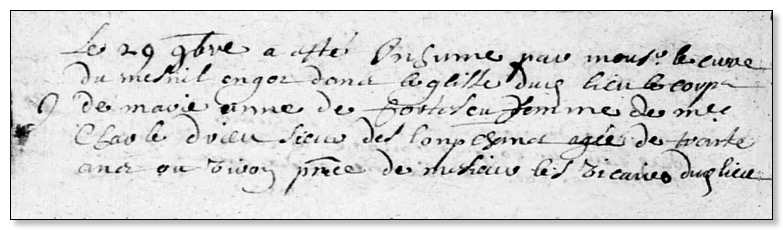 Le 29 9bre a esté Inhumé par mousr le curre
du mesnil engor dans leglisse dud lieu le corps
de marie anne de femme de mre
Charle drieu sieur des lonpchams agée de trente
ans ou viron pnce de mesieur les vicaires dud lieu